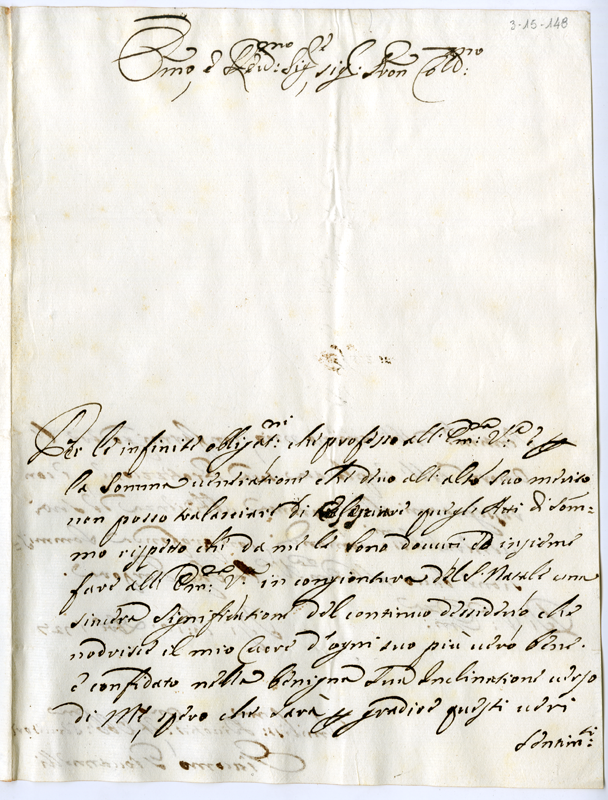 3-15-148
Emo, e Reud:mo Sig:re, sig:r Pron Coll:mo
Per le infinite obligat:ni che professo all' Em:za V:ra e p
la somma veneratione che deuo all' alto suo merito
non posso tralasciare di esseguire quegli Atti di som=
mo rispetto che da me le sono douuti ed insieme
fare all' Em:za V:ra in congiontura del S: Natale una
sincera significatione del continuo desiderio, che
nodrisce il mio Cuore d'ogni suo più uero bene.
e confidato nella benigna Sua Inclinatione uerso
di Me, spero che sarà p gradire questi ueri
sentim:ti